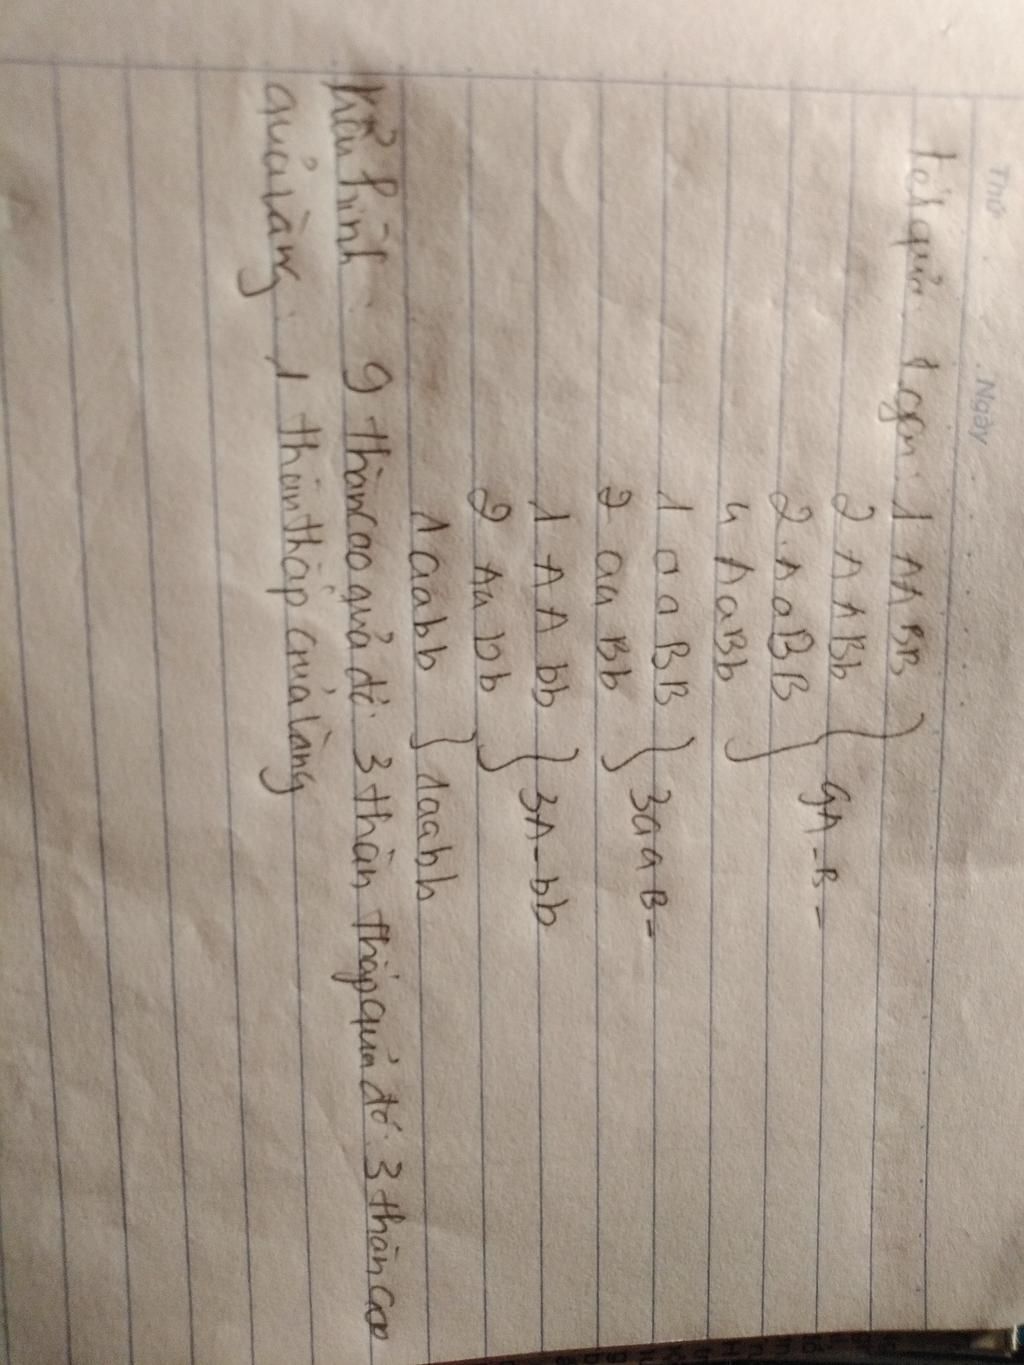 Thứ . Ngày
kết quả: 1 AABB
2 AABb
2 AaBB } 9A-B-
4 AaBb
1 aaBB } 3aaB-
2 aaBb
1 AAbb } 3A-bb
2 Aabb
1 aabb } 1aabb
kiểu hình: 9 thân cao quả đỏ: 3 thân thấp quả đỏ: 3 thân cao
quả vàng: 1 thân thấp quả vàng